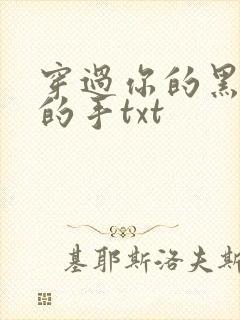 穿過你的黑
的手txt
基耶斯洛夫斯